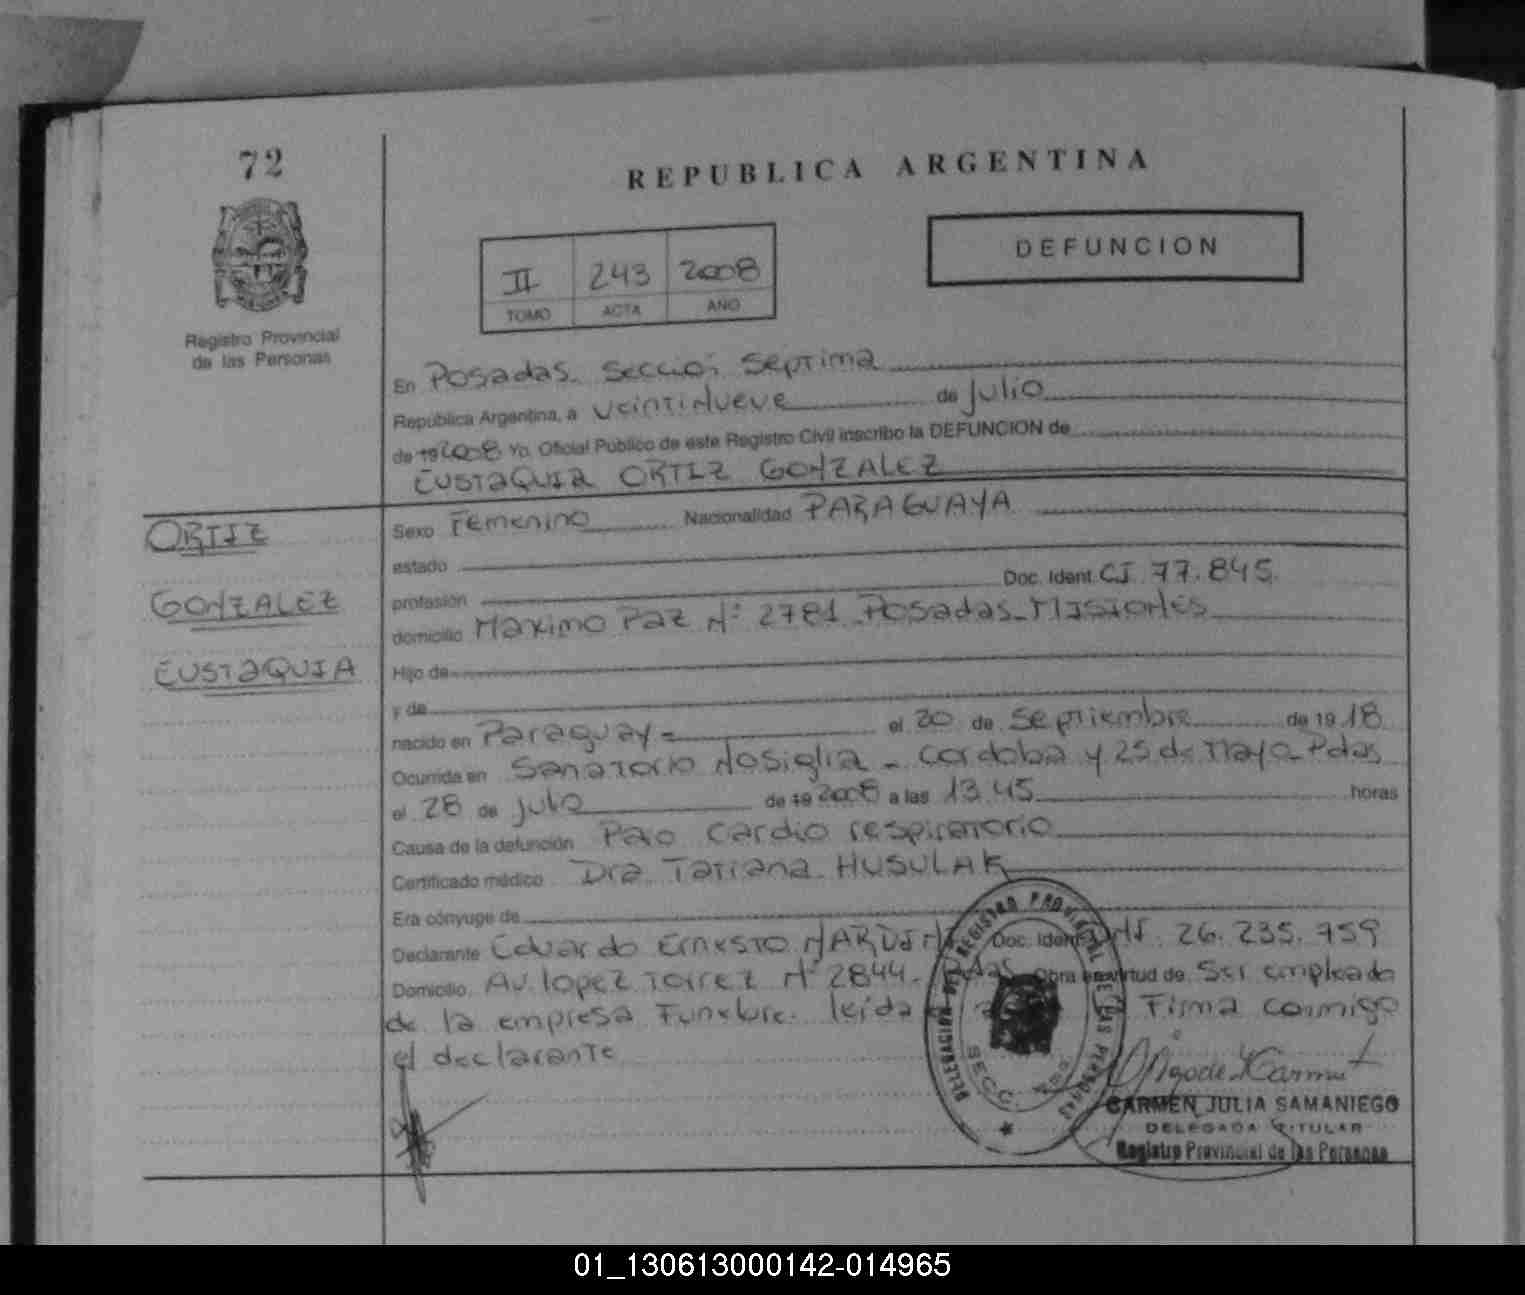 72
REPUBLICA ARGENTINA
Registro Provincial
de las Personas
II 243 2008
TOMO ACTA AÑO
DEFUNCION
En Posadas. Secció; Septima
República Argentina, a veintinueve de julio
de 19 2008 Yo, Oficial Público de este Registro Civil inscribo la DEFUNCION de
EUSTAQUIA ORTIZ GONZALEZ
ORTIZ
GONZALEZ
EUSTAQUIA
Sexo Femenino Nacionalidad PARAGUAYA
estado
profesión Doc. Ident. CI. 77.845.
domicilio Maximo Paz Nº 2781 Posadas - Misiones
Hijo de
y de
nacido en Paraguay = el 20 de septiembre de 19 18
Ocurrida en Sanatorio Nosiglia - Cordoba y 25 de Mayo - Pdas
el 28 de julio de 19 2008 a las 13.45 horas
Causa de la defunción Paro Cardio respiratorio
Certificado médico Dra. Tatiana HUSULAK
Era cónyuge de
Declarante Eduardo Ernesto Doc. Ident. 26.235.759
Domicilio Av. Lopez Torrez Nº 2844. Obra en virtud de Ser empleado
de la empresa Funebre. leída Firma conmigo
el declarante
DELEGACION DEL REGISTRO PROVINCIAL DE LAS PERSONAS
SECC.
CARMEN JULIA SAMANIEGO
DELEGADA TITULAR
Registro Provincial de las Personas
01_130613000142-014965